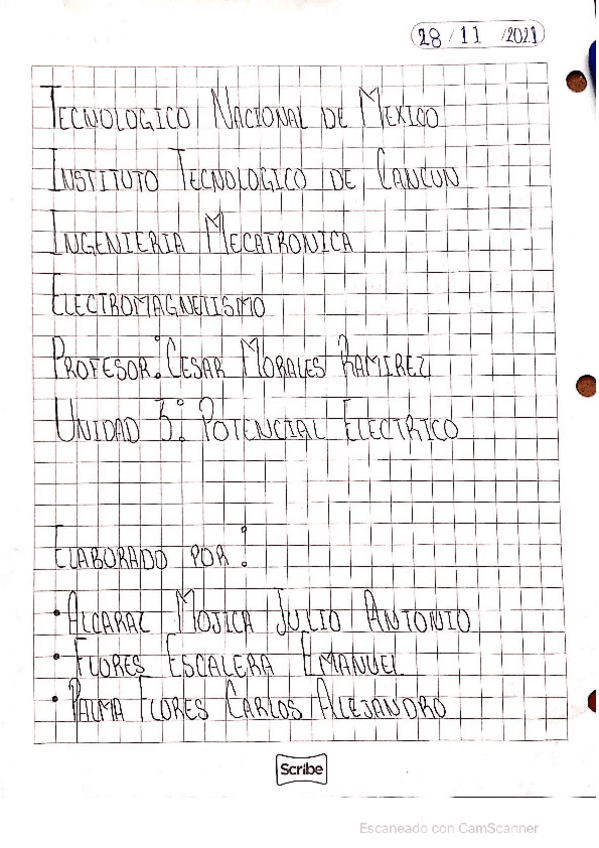 28/11/2021
TECNOLOGICO NACIONAL DE MEXICO
INSTITUTO TECNOLOGICO DE CANCUN
INGENIERIA MECATRONICA
ELECTROMAGNETISMO
PROFESOR: CESAR MORALES RAMIREZ
UNIDAD 3: POTENCIAL ELECTRICO
ELABORADO POR:
• ALCARAZ MOJICA JULIO ANTONIO
• FLORES ESCALERA EMANUEL
• PALMA FLORES CARLOS ALEJANDRO
Scribe
Escaneado con CamScanner